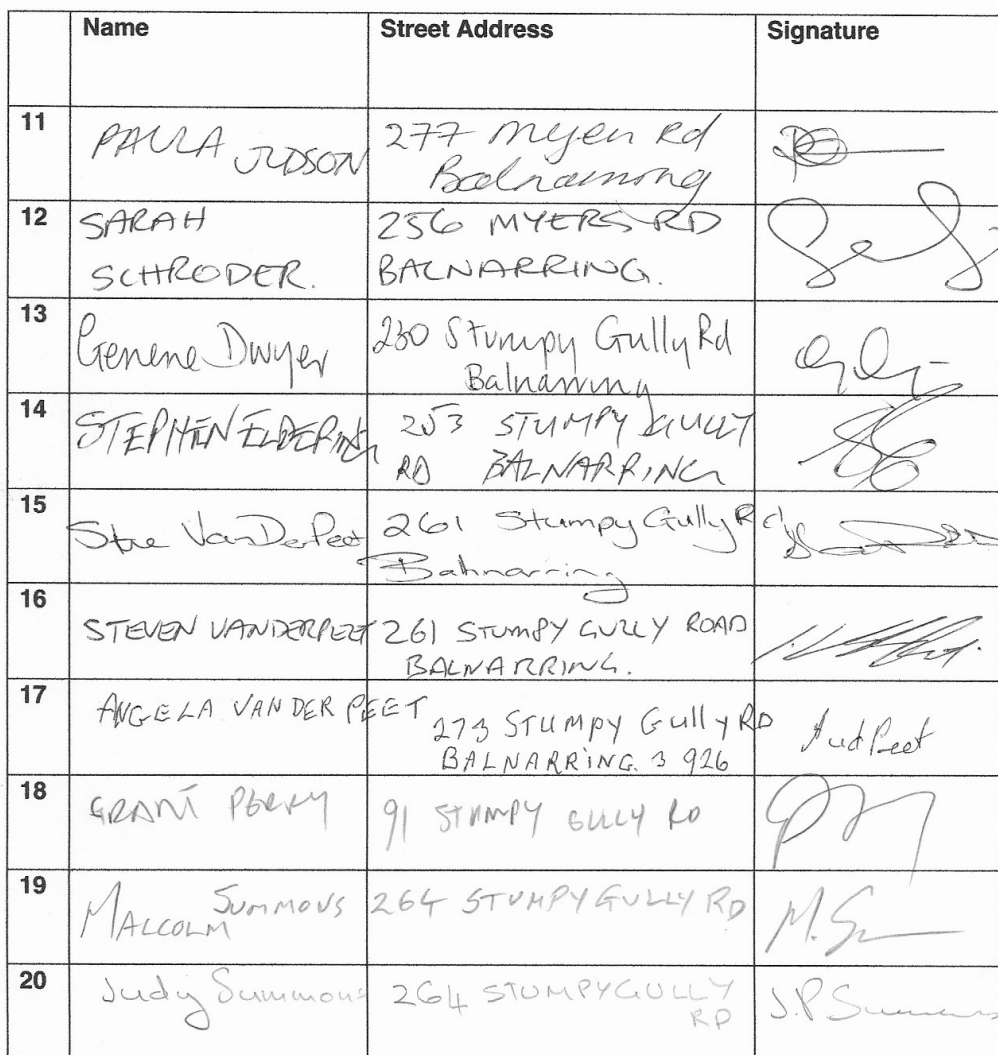 Name Street Address Signature
11 PAULA JUDSON 277 Myers Rd
Balnarring
12 SARAH 256 MYERS RD
SCHRODER. BALNARRING.
13 Genene Dwyer 230 Stumpy Gully Rd
Balnarring
14 STEPHEN ELDERING 253 STUMPY GULLY
RD BALNARRING
15 Sue VanDerPeet 261 Stumpy Gully Rd
Balnarring
16 STEVEN VANDERPEET 261 STUMPY GULLY ROAD
BALNARRING.
17 ANGELA VAN DER PEET 273 STUMPY Gully RD
BALNARRING. 3926
18 GRANT PERRY 91 STUMPY GULLY RD
19 MALCOLM SUMMONS 264 STUMPY GULLY RD M. S
20 Judy Summons 264 STUMPY GULLY J.P. Summons
RD